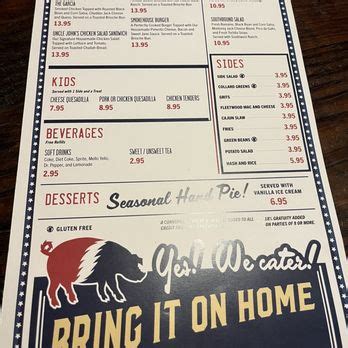 THE GARCIA
Smoked Chicken Tapped with Roasted Black
Bean and Corn Salsa, Cheddar Jack Cheese
and Guac. Served on a Toasted Brioche Bun.
13.95
UNCLE JOHN'S CHICKEN SALAD SANDWICH
Our Signature Housemade Chicken Salad
Topped with Lettuce and Tomato.
Served on Toasted Challah Bread.
13.95
SMOKEHOUSE BURGER
A Perfectly Smoked Burger Topped with our
Housemade Pimento Cheese, Bacon and
Sweet Jane Sauce. Served on a Toasted
Brioche Bun.
13.95
SOUTHBOUND SALAD
Fresh Romaine, Black Bean and Corn Salsa,
Monterey Jack Cheese, Pico
and Fresh Tortilla Strips
Served with Southwest Ranch.
KIDS
Served with 1 Side and a Treat
CHEESE QUESADILLA
7.95
PORK OR CHICKEN QUESADILLA
8.95
CHICKEN TENDERS
8.95
BEVERAGES
Free Refills
SOFT DRINKS
Coke, Diet Coke, Sprite, Mello Yello,
Dr. Pepper, and Lemonade
2.95
SWEET / UNSWEET TEA
2.95
SIDES
SIDE SALAD 3.95
COLLARD GREENS 3.95
GRITS 3.95
FLEETWOOD MAC AND CHEESE 3.95
CAJUN SLAW 3.95
FRIES 3.95
GREEN BEANS 3.95
POTATO SALAD 3.95
HASH AND RICE 5.95
DESSERTS
Seasonal Hand Pie!
SERVED WITH
VANILLA ICE CREAM
6.95
GLUTEN FREE
18% GRATUITY ADDED
ON PARTIES OF 8 OR MORE.
Yes! We cater!
BRING IT ON HOME